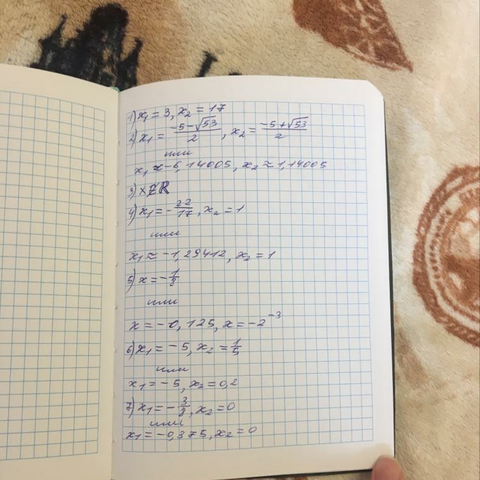 1) x₁ = 3, x₂ = 17
2) x₁ = (-5-√53)/2, x₂ = (-5+√53)/2
или
x₁ ≈ -6,14005, x₂ ≈ 1,14005
3) x∉R
4) x₁ = -22/17, x₂ = 1
или
x₁ ≈ -1,29412, x₂ = 1
5) x = -1/8
или
x = -0,125, x = -2⁻³
6) x₁ = -5, x₂ = 1/5
или
x₁ = -5, x₂ = 0,2
7) x₁ = -3/8, x₂ = 0
или
x₁ = -0,375, x₂ = 0